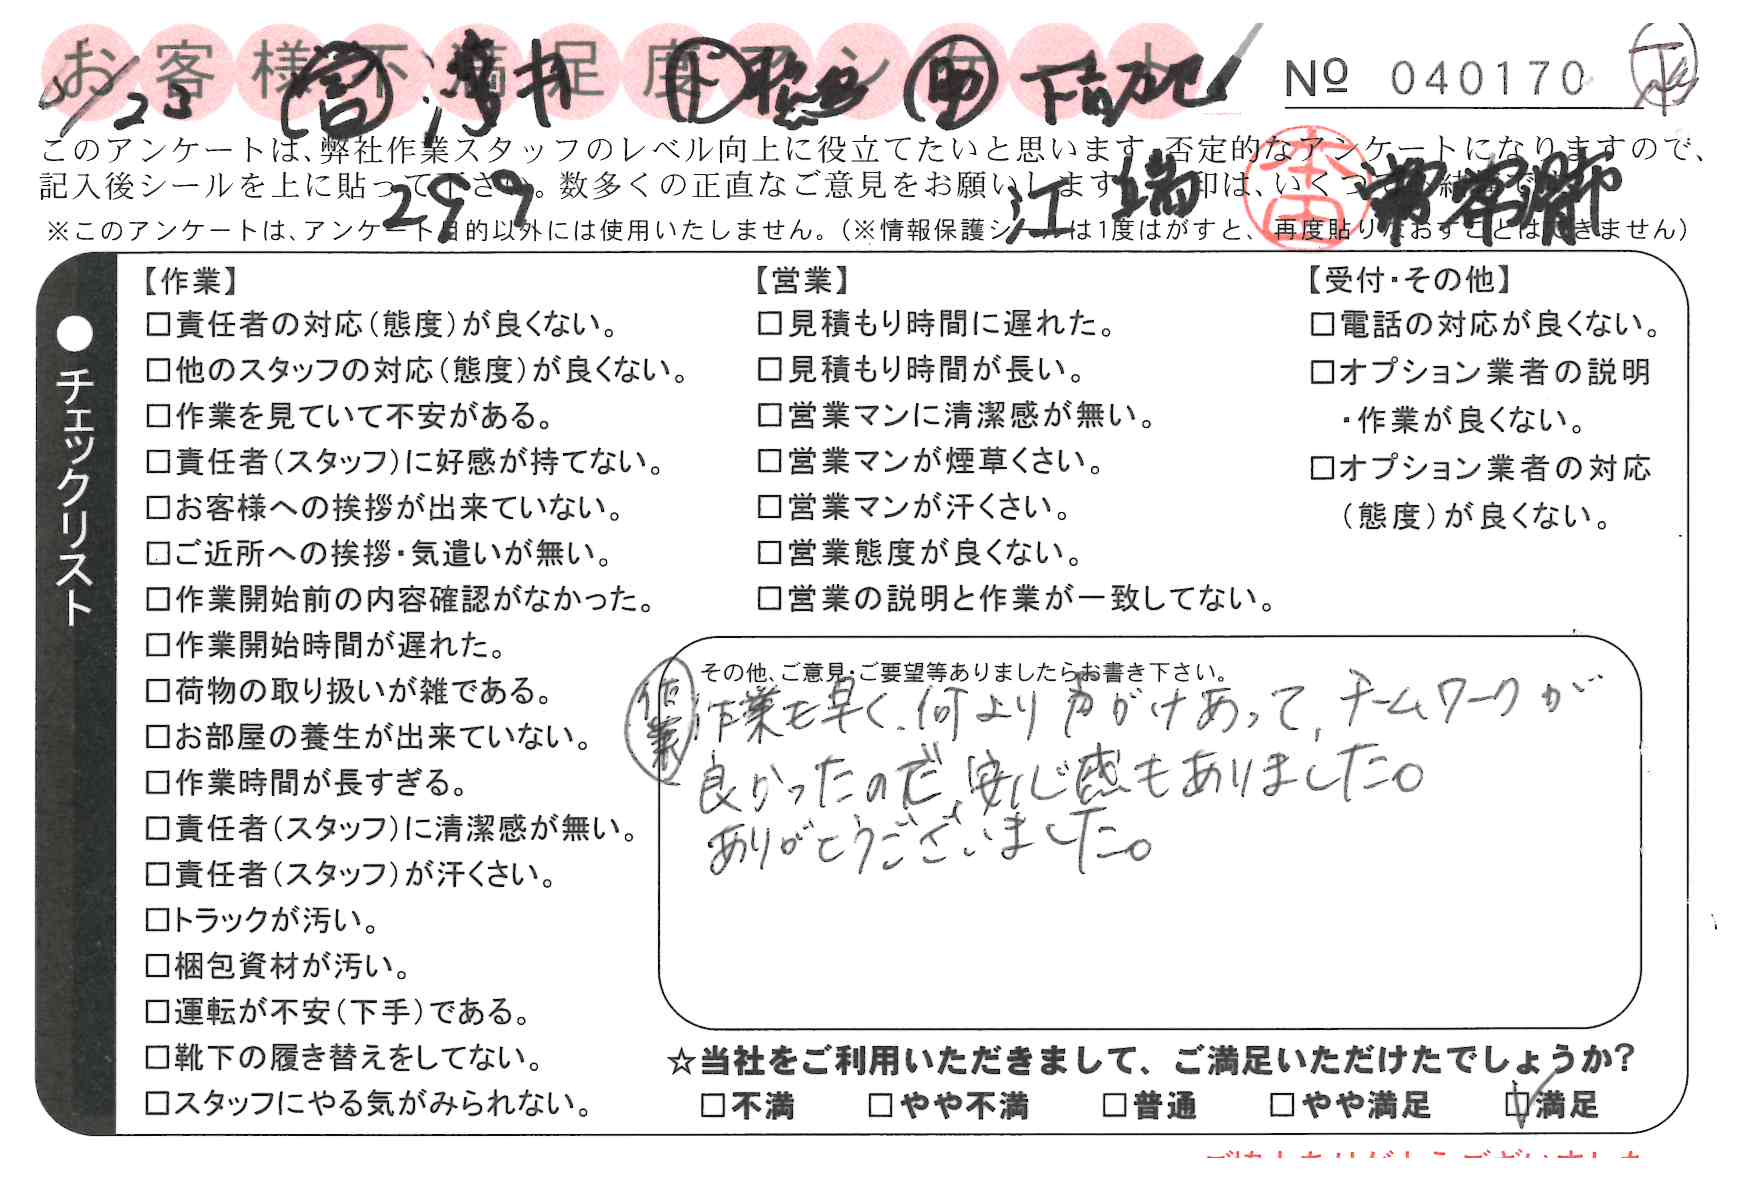 お客様不満足度アンケート
/23 営 澤井 ト 聡 助 下高
No 040170
このアンケートは、弊社作業スタッフのレベル向上に役立てたいと思います。否定的なアンケートになりますので、
記入後シールを上に貼って下さい。数多くの正直なご意見をお願いします。 印は、いくつ
299 江端 本田
※このアンケートは、アンケート目的以外には使用いたしません。(※情報保護シールは1度はがすと、再度貼りなおすことはできません)
●チェックリスト
【作業】
□責任者の対応(態度)が良くない。
□他のスタッフの対応(態度)が良くない。
□作業を見ていて不安がある。
□責任者(スタッフ)に好感が持てない。
□お客様への挨拶が出来ていない。
□ご近所への挨拶・気遣いが無い。
□作業開始前の内容確認がなかった。
□作業開始時間が遅れた。
□荷物の取り扱いが雑である。
□お部屋の養生が出来ていない。
□作業時間が長すぎる。
□責任者(スタッフ)に清潔感が無い。
□責任者(スタッフ)が汗くさい。
□トラックが汚い。
□梱包資材が汚い。
□運転が不安(下手)である。
□靴下の履き替えをしてない。
□スタッフにやる気がみられない。
【営業】
□見積もり時間に遅れた。
□見積もり時間が長い。
□営業マンに清潔感が無い。
□営業マンが煙草くさい。
□営業マンが汗くさい。
□営業態度が良くない。
□営業の説明と作業が一致してない。
【受付・その他】
□電話の対応が良くない。
□オプション業者の説明
・作業が良くない。
□オプション業者の対応
(態度)が良くない。
その他、ご意見・ご要望等ありましたらお書き下さい。
作業
作業も早く、何より声がけあって、チームワークが
良かったので、安心感もありました。
ありがとうございました。
☆当社をご利用いただきまして、ご満足いただけたでしょうか?
□不満 □やや不満 □普通 □やや満足 ☑満足
ご協力ありがとうございました